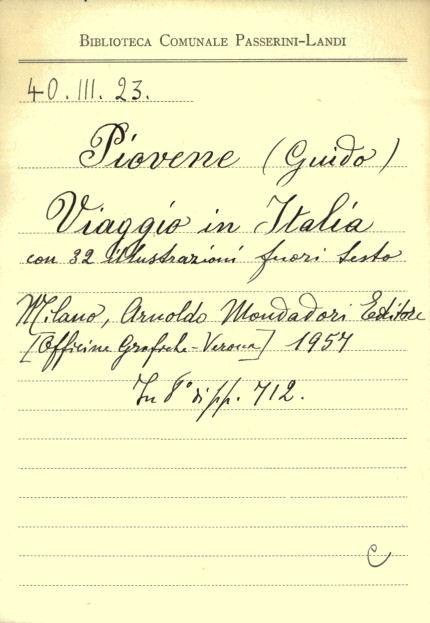 BIBLIOTECA COMUNALE PASSERINI-LANDI
40. III. 23.
Piovene (Guido)
Viaggio in Italia
con 32 illustrazioni fuori testo
Milano, Arnoldo Mondadori Editore
[Officine Grafiche-Verona] 1957
In 8° di pp. 712.
C